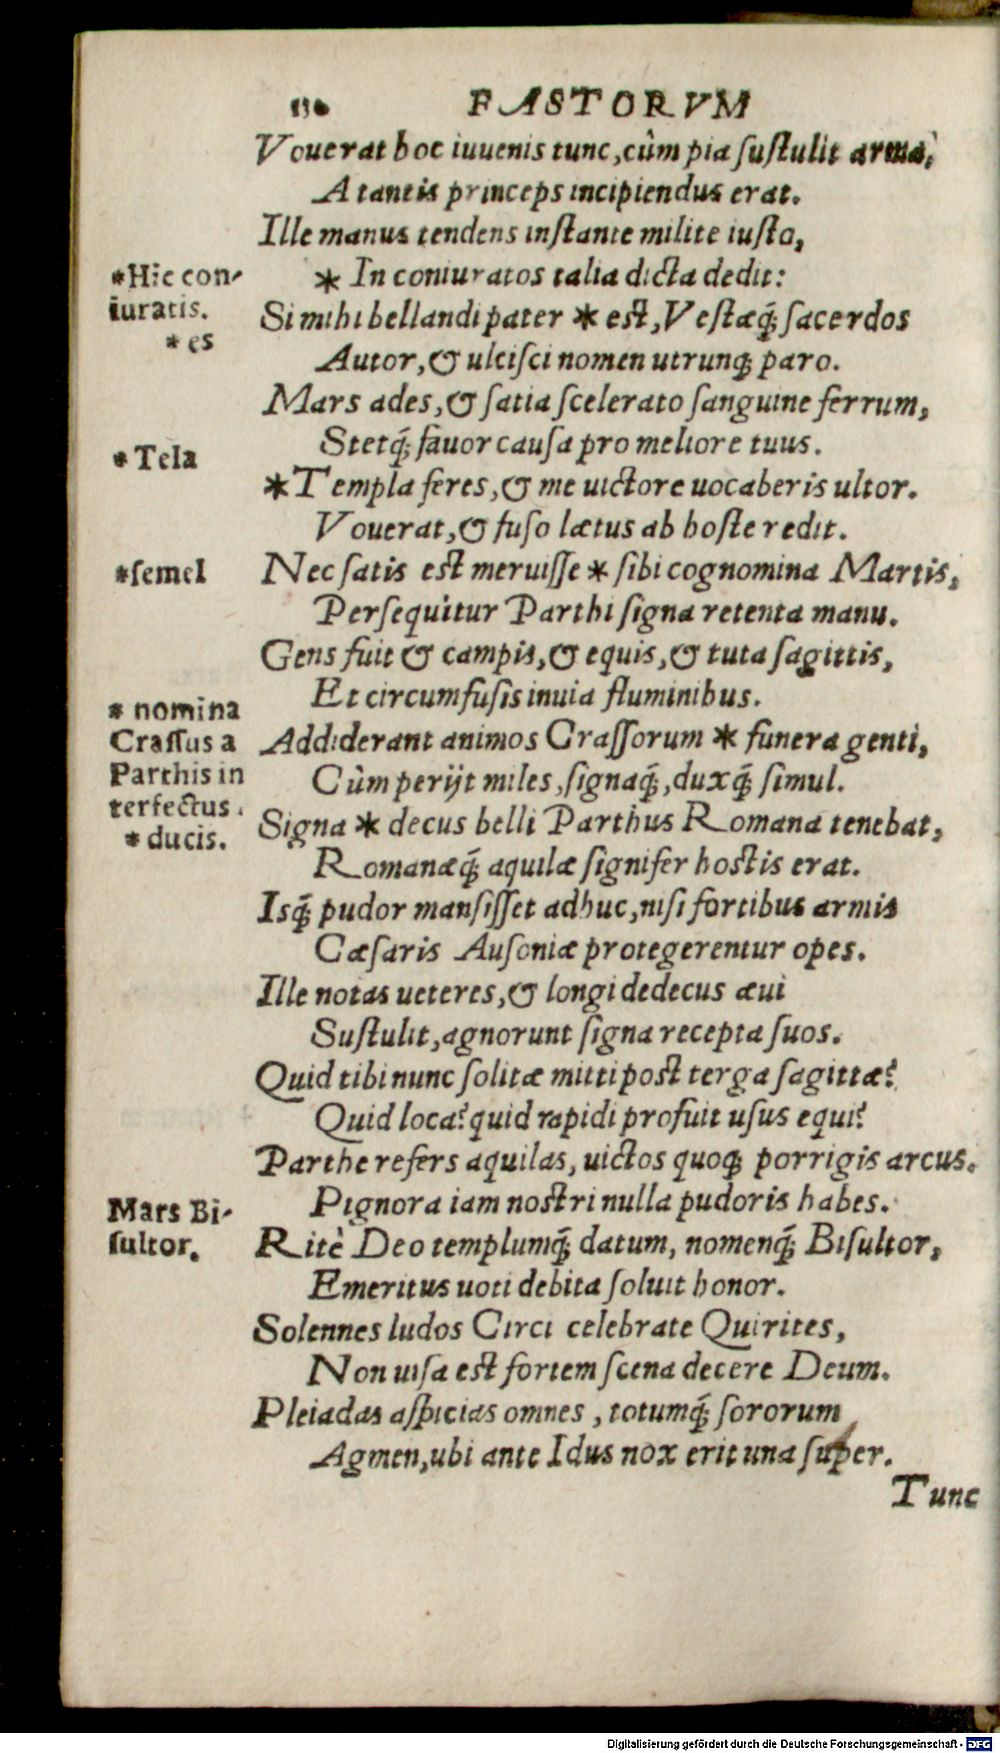 FASTORVM
Vouerat hoc iuuenis tunc, cùm pia ſuſtulit arma,
A tantis princeps incipiendus erat.
Ille manus tendens inſtante milite iuſto,
*Hic con-
iuratis.
* In coniuratos talia dicta dedit:
Si mihi bellandi pater * eſt, Veſtæq́; ſacerdos
* es
Autor, & ulciſci nomen utrunq; paro.
Mars ades, & ſatia ſcelerato ſanguine ferrum,
Stetq́; fauor cauſa pro meliore tuus.
*Tela
*Templa feres, & me uictore uocaberis ultor.
Vouerat, & fuſo lætus ab hoſte redit.
*ſemel
Nec ſatis eſt meruiſſe * ſibi cognomina Martis,
Perſequitur Parthi ſigna retenta manu.
Gens fuit & campis, & equis, & tuta ſagittis,
Et circumfuſis inuia fluminibus.
* nomina
Craſſus a
Parthis in
terfectus.
* ducis.
Addiderant animos Craſſorum * funera genti,
Cùm perijt miles, ſignaq́;, duxq́; ſimul.
Signa * decus belli Parthus Romana tenebat,
Romanæq́; aquilæ ſignifer hoſtis erat.
Isq́; pudor manſiſſet adhuc, niſi fortibus armis
Cæſaris Auſoniæ protegerentur opes.
Ille notas ueteres, & longi dedecus æui
Suſtulit, agnorunt ſigna recepta ſuos.
Quid tibi nunc ſolitæ mitti poſt terga ſagittæ?
Quid loca? quid rapidi profuit uſus equi?
Parthe refers aquilas, uictos quoq; porrigis arcus.
Pignora iam noſtri nulla pudoris habes.
Mars Bi-
ſultor.
Ritè Deo templumq́; datum, nomenq́; Biſultor,
Emeritus uoti debita ſoluit honor.
Solennes ludos Circi celebrate Quirites,
Non uiſa eſt fortem ſcena decere Deum.
Pleiadas aſpicias omnes, totumq́; ſororum
Agmen, ubi ante Idus nox erit una ſuper.
Tunc
Digitalisierung gefördert durch die Deutsche Forschungsgemeinschaft - DFG